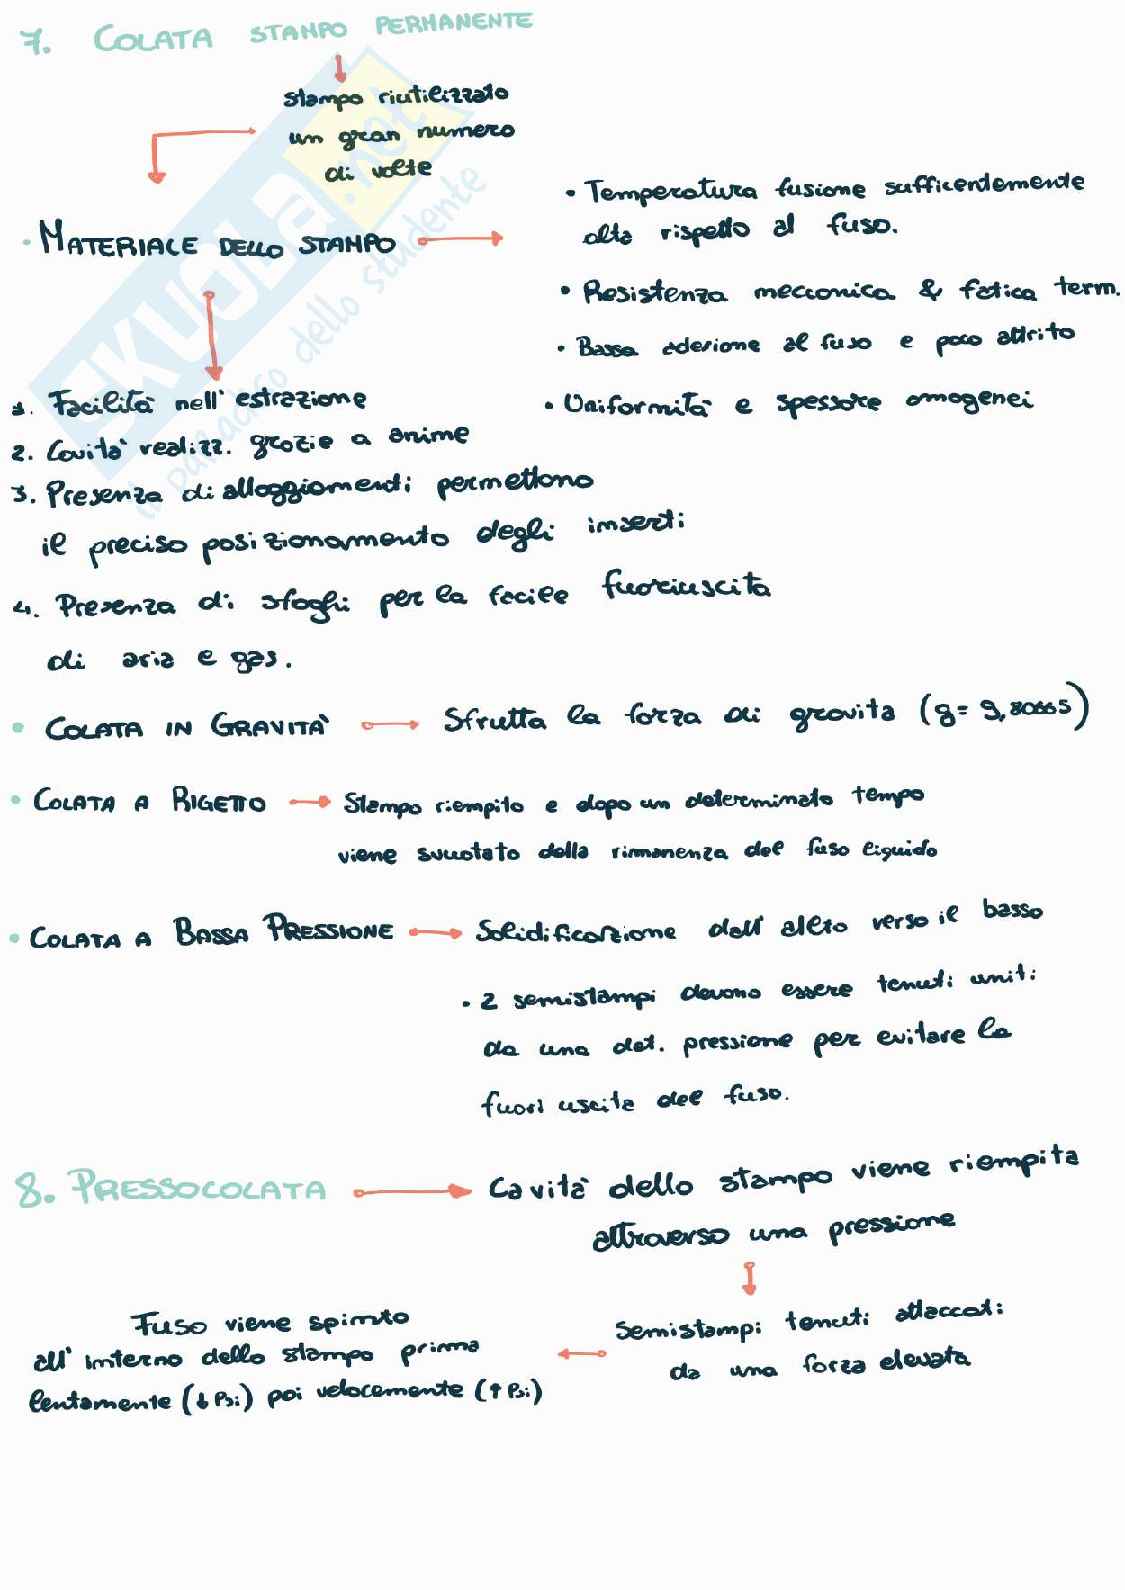 7. COLATA STAMPO PERMANENTE
stampo riutilizzato
un gran numero
di volte
• MATERIALE DELLO STAMPO
• Temperatura fusione sufficentemente
alta rispetto al fuso.
• Resistenza meccanica & fatica term.
• Bassa adesione al fuso e poco attrito
• Uniformità e spessore omogenei
1. Facilità nell' estrazione
2. Cavità realizz. grazie a anime
3. Presenza di alloggiamenti permettono
il preciso posizionamento degli inserti
4. Presenza di sfoghi per la facile fuoriuscita
di aria e gas.
• COLATA IN GRAVITÀ Sfrutta la forza di gravita (g= 9,80665)
• COLATA A RIGETTO Stampo riempito e dopo un determinato tempo
viene svuotato della rimanenza del fuso liquido
• COLATA A BASSA PRESSIONE Solidificazione dall' alto verso il basso
• 2 semistampi devono essere tenuti uniti
da una det. pressione per evitare la
fuori uscita del fuso.
8. PRESSOCOLATA Cavità dello stampo viene riempita
attraverso una pressione
Semistampi tenuti attaccati
da una forza elevata
Fuso viene spinto
all' interno dello stampo prima
lentamente (↓ Psi) poi velocemente (↑ Psi)
SKUOLA.net
il paradiso dello studente